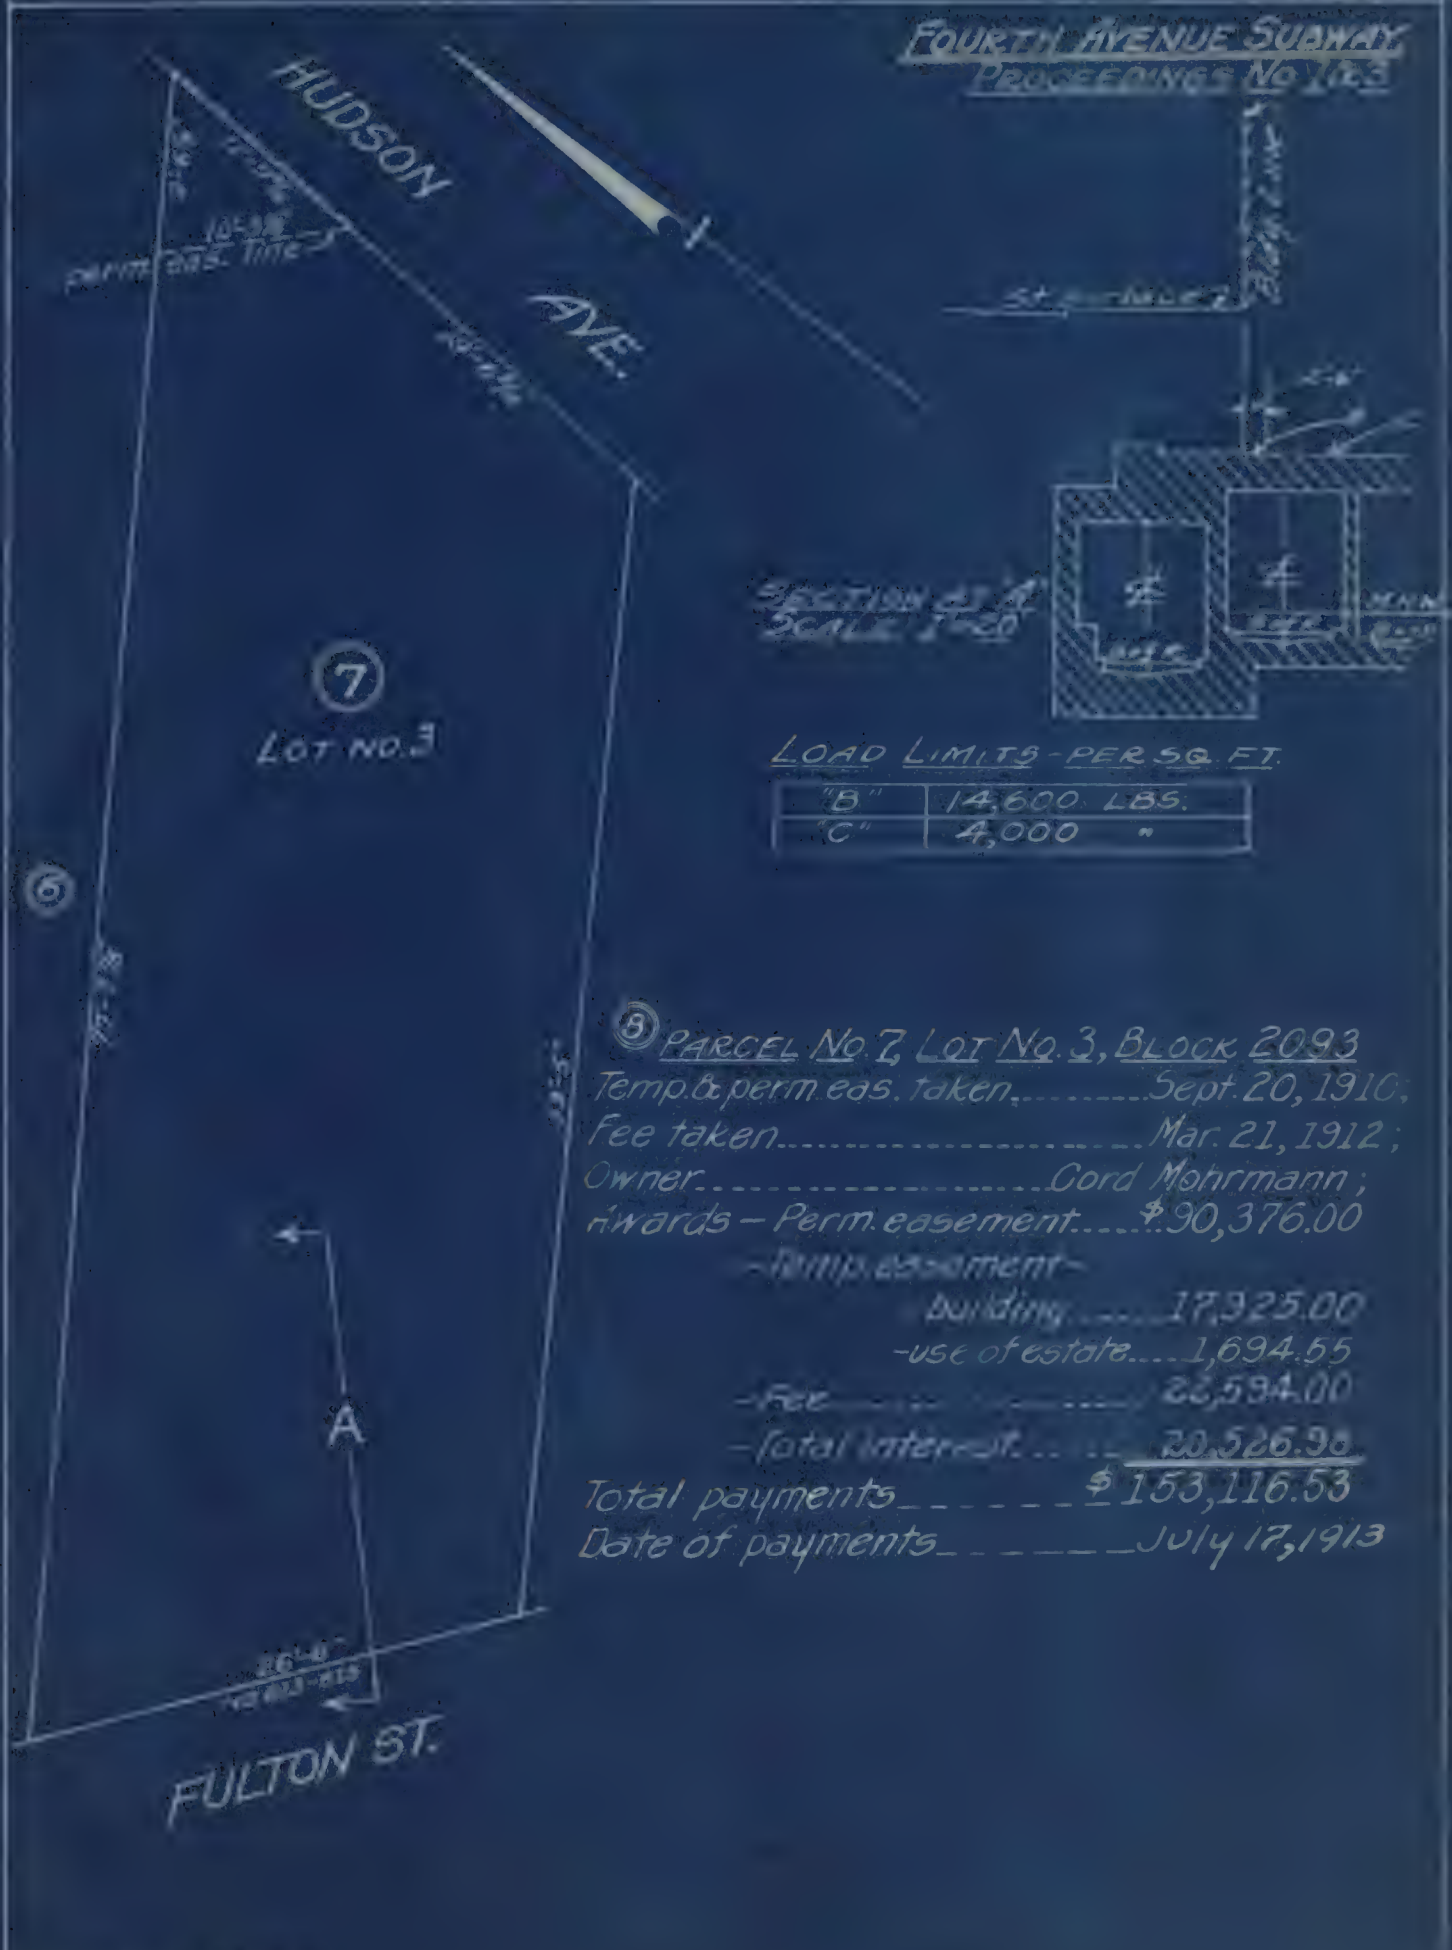 FOURTH AVENUE SUBWAY
PROCEEDINGS No
HUDSON
AVE.
perm. eas. line
Bldg. Line
SECTION AT "A"
SCALE 1"=20'
7
LOT NO. 3
6
LOAD LIMITS - PER SQ. FT.
"B" 14,600 LBS.
"C" 4,000 "
8 PARCEL No. 7, LOT No. 3, BLOCK 2093
Temp. & perm. eas. taken.......... Sept. 20, 1910;
Fee taken.......................... Mar. 21, 1912;
Owner........................ Cord Mohrmann;
Awards - Perm. easement...... $90,376.00
- Temp. easement -
building...... 17,925.00
- use of estate.... 1,694.55
- Fee .......... 22,594.00
- Total interest....... 20,526.98
Total payments ________ $153,116.53
Date of payments ________ July 17, 1913
A
FULTON ST.